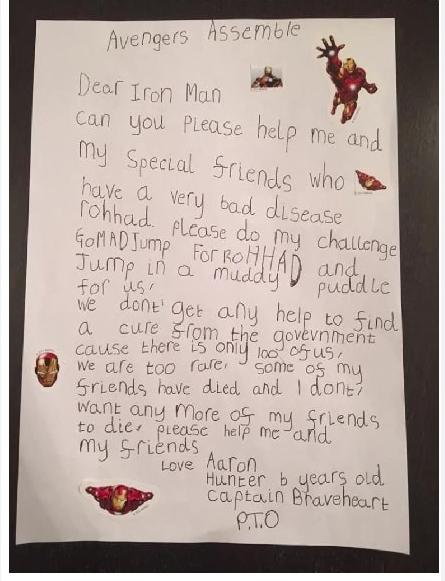 Avengers Assemble
Dear Iron Man
can you please help me and
my special friends who
have a very bad disease
rohhad. please do my challenge
GoMADJump For ROHHAD and
Jump in a muddy puddle
for us,
we dont' get any help to find
a cure from the government
cause there is only 100 of us,
we are too rare, some of my
friends have died and I dont,
want any more of my friends
to die, please help me and
my friends
Love Aaron
Hunter 6 years old
captain Braveheart
P.T.O